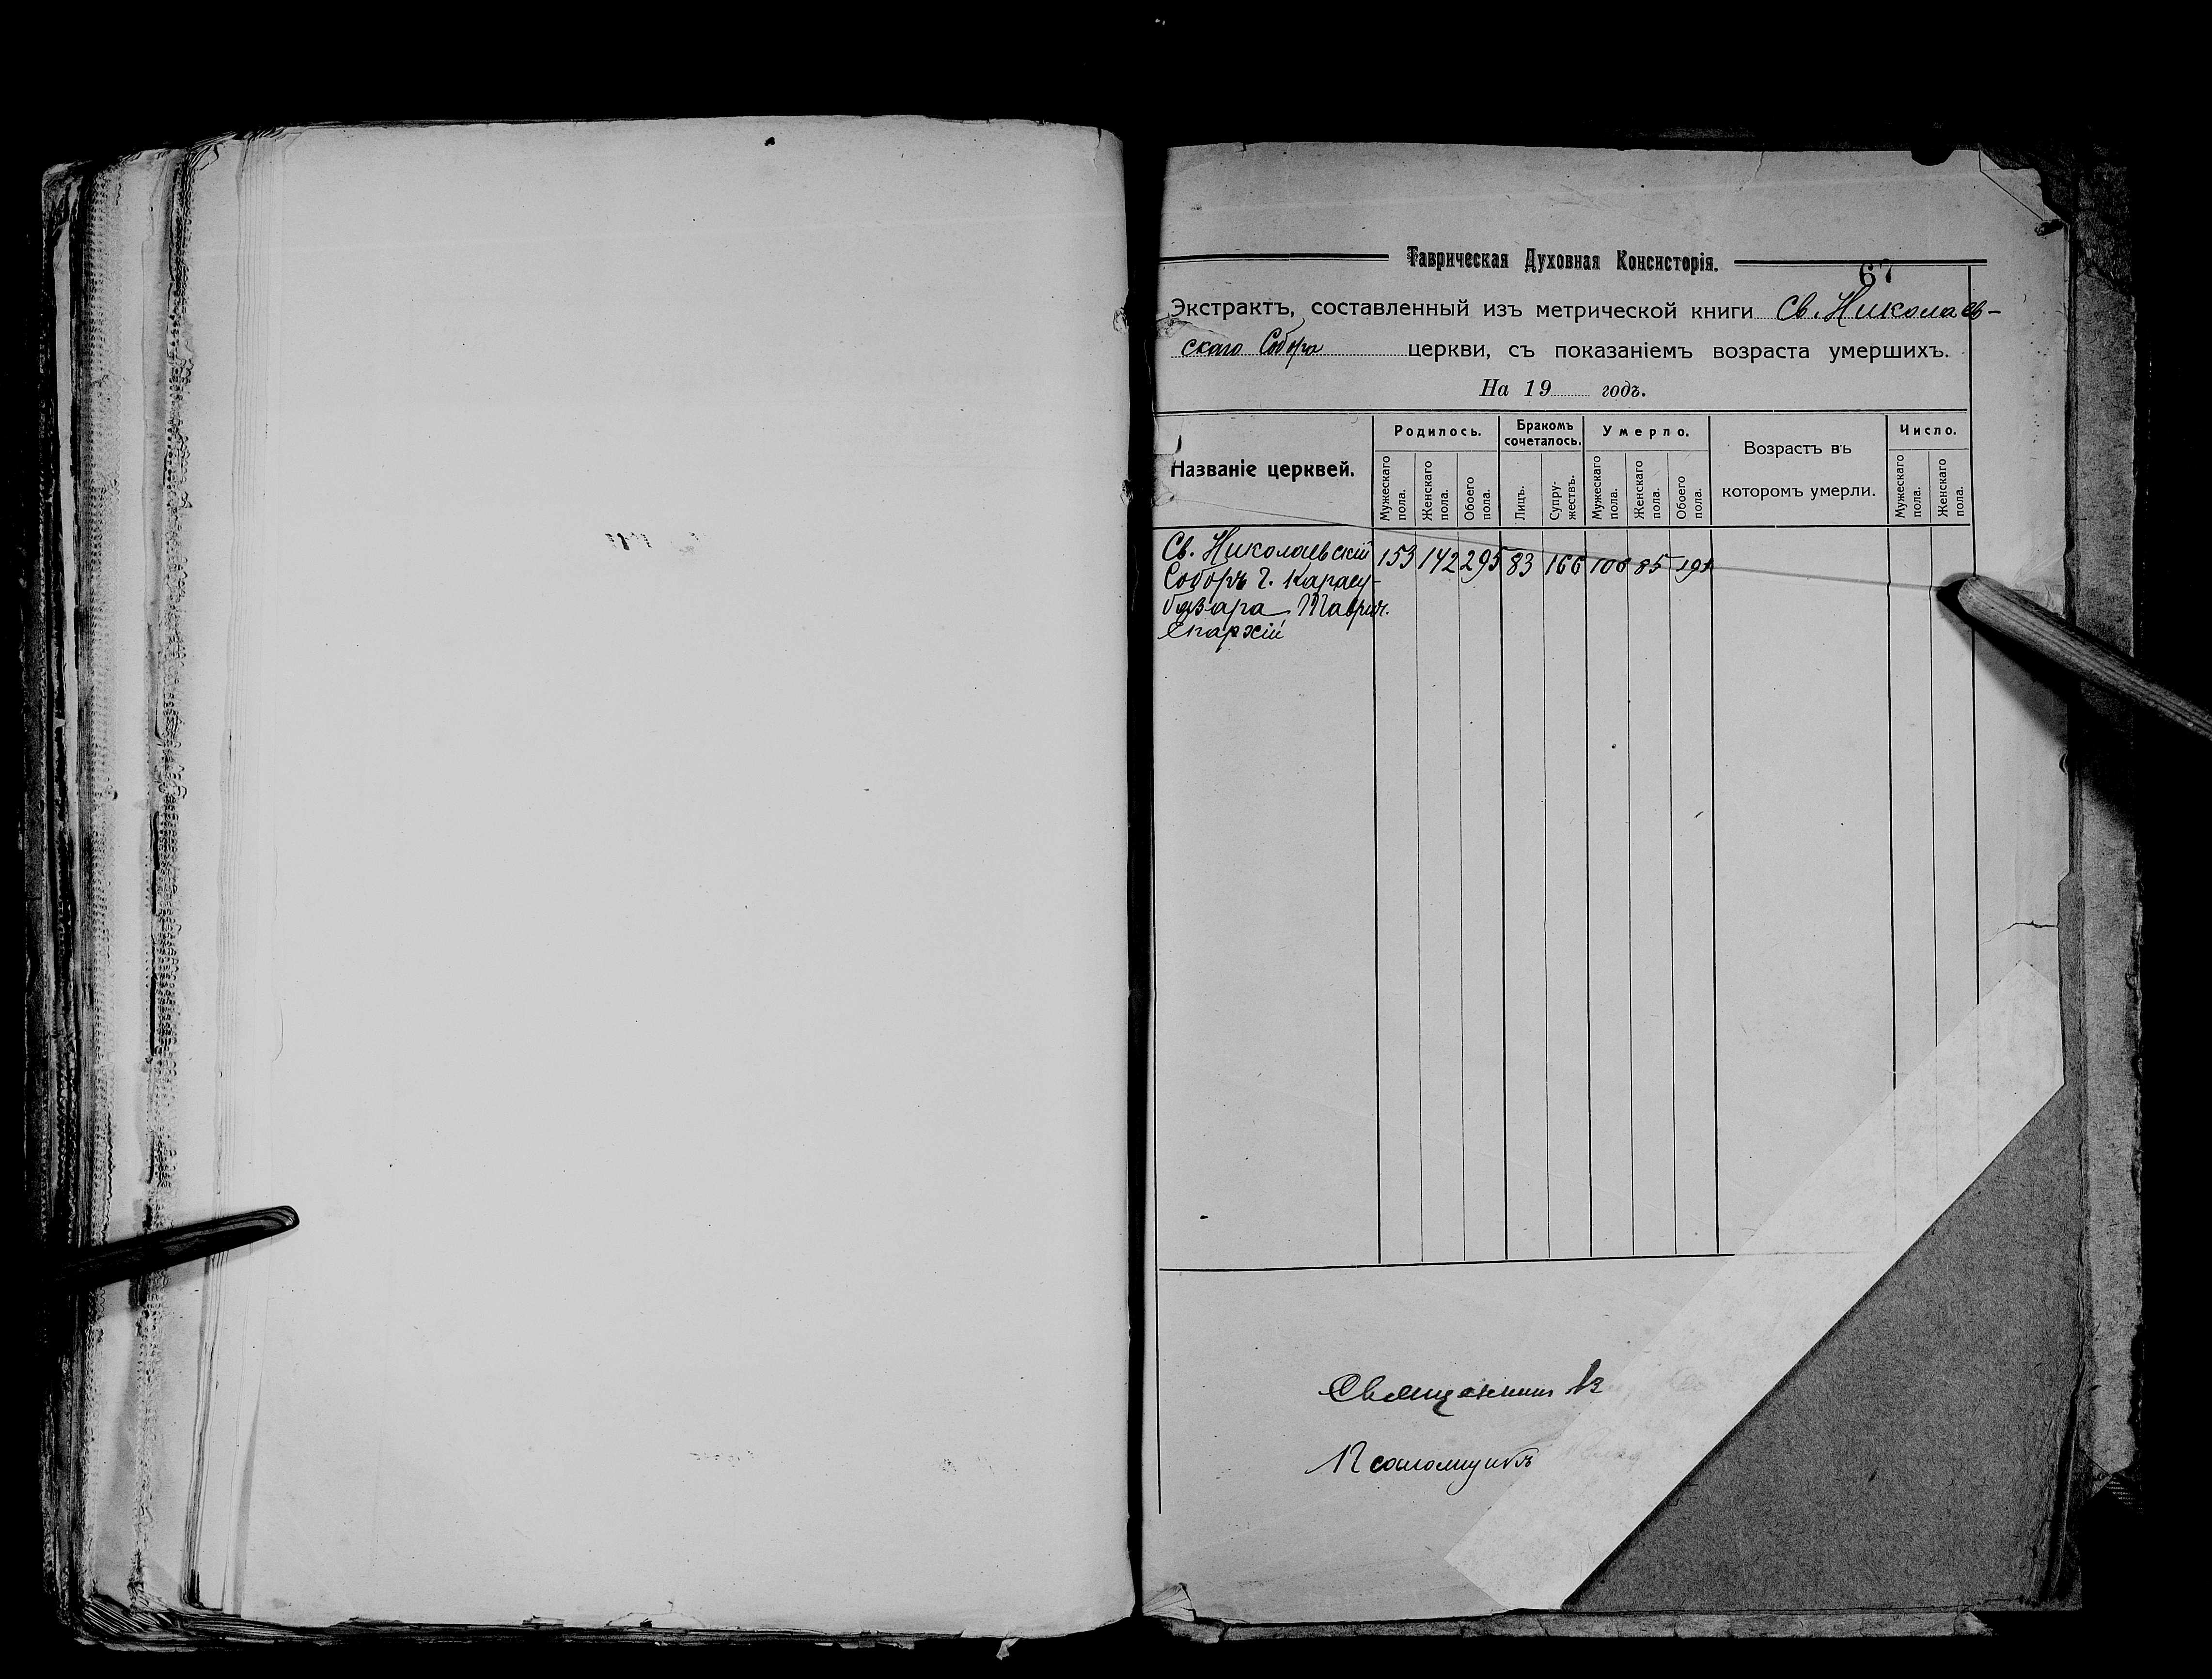 Таврическая Духовная Консисторія.
67
Экстрактъ, составленный изъ метрической книги Св. Николаев-
скаго Собора церкви, съ показаніемъ возраста умершихъ.
На 19 годъ.
Названіе церквей.
Родилось.
Бракомъ сочеталось.
Умерло.
Возрастъ въ
котомъ умерли.
Число.
Мужескаго пола.
Женскаго пола.
Обоего пола.
Лицъ.
Супру-жествъ.
Мужескаго пола.
Женскаго пола.
Обоего пола.
Мужескаго пола.
Женскаго пола.
Св. Николаевскій 153 142 295 83 166 106 85 191
Соборъ г. Карасу-
базара Таврич.
Епархіи
Священникъ
Псаломщикъ